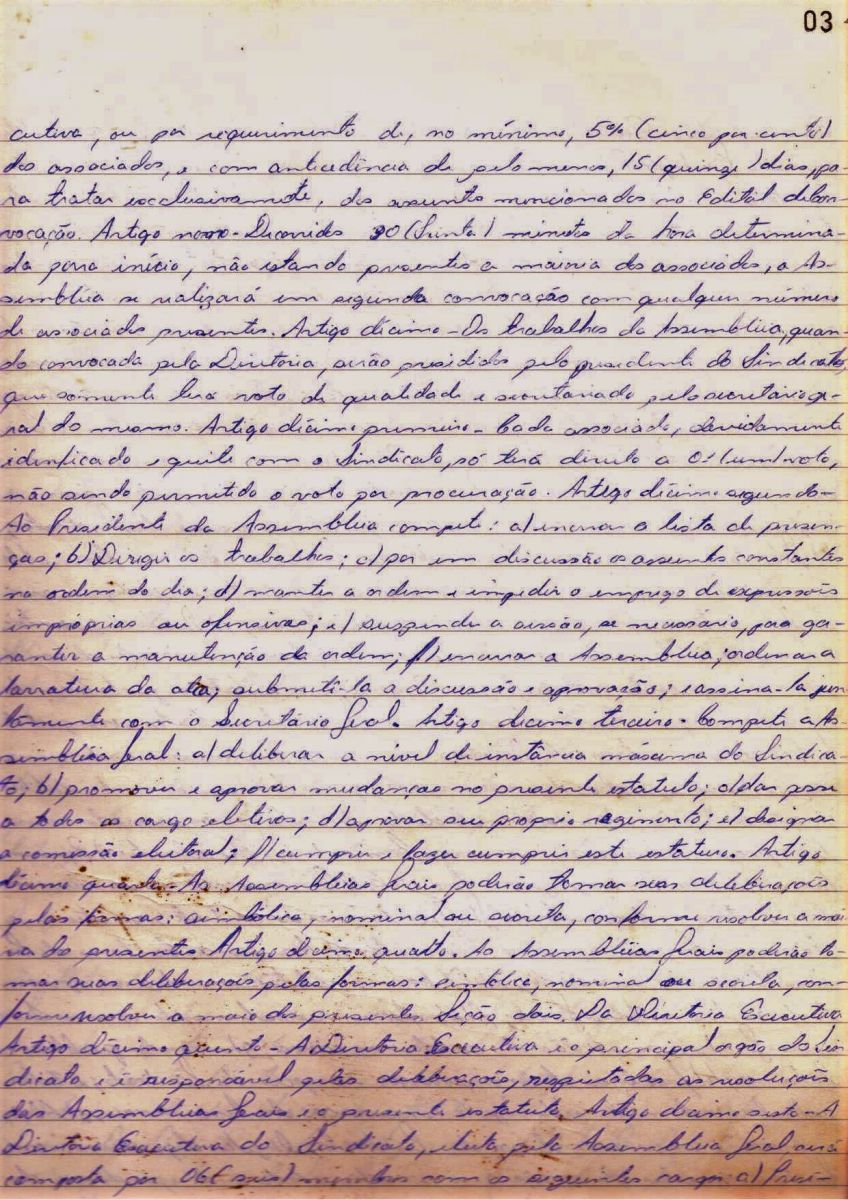 03
cutiva, ou por requerimento de, no mínimo, 5% (cinco por cento)
dos associados, e com antecedência de pelo menos, 15 (quinze) dias, pa-
ra tratar exclusivamente, dos assuntos mencionados no Edital de Con-
vocação. Artigo nono - Decorridos 30 (trinta) minutos da hora determina-
da para início, não estando presentes a maioria dos associados, a As-
sembléia se realizará em segunda convocação com qualquer número
de associados presentes. Artigo décimo - Os trabalhos da Assembléia, quan-
do convocada pela Diretoria, serão presididos pelo presidente do Sindicato,
que somente terá voto de qualidade e secretariado pelo secretário ge-
ral do mesmo. Artigo décimo primeiro - Cada associado, devidamente
idenficado e quite com o Sindicato, só terá direito a 01 (um) voto,
não sendo permitido o voto por procuração. Artigo décimo segundo -
Ao Presidente da Assembléia compete: a) encerrar a lista de presen-
ças; b) Dirigir os trabalhos; c) por em discussão os assuntos constantes
na ordem do dia; d) manter a ordem e impedir o emprego de expressões
impróprias ou ofensivas; e) suspender a sessão, se necessário, para ga-
rantir a manutenção da ordem; f) encerrar a Assembléia; ordenar a
larratura da ata; submetê-la a discussão e aprovação; e assina-la jun-
tamente com o Secretário Geral. Artigo decimo terceiro - Compete a As-
sembléia Geral: a) deliberar a nível de instância máxima do Sindica-
to; b) promover e aprovar mudanças no presente estatuto; c) dar posse
a todos os cargo eletivos; d) aprovar seu proprio regimento; e) designar
a comissão eleitoral; f) cumprir e fazer cumprir este estatuto. Artigo
décimo quarto - As Assembléias Gerais poderão tomar suas deliberações
pelas formas: simbólica, nominal ou secreta, conforme resolver a maio-
ria do presentes Artigo décimo quatto. As Assembléias Gerais poderão to-
mar suas deliberações pelas formas: simbólica, nominal ou secreta, con-
forme resolver a maio dos presentes Seção dois. Da Diretoria Executiva
Artigo décimo quinto - A Diretoria Executiva é o principal orgão do Sin-
dicato e é responsável pelas deliberações, respeitadas as resoluções
das Assembléias Gerais e o presente estatuto. Artigo décimo sexto - A
Diretoria Executiva do Sindicato, eleita pela Assembléia Geral será
composta por 06 (seis) membros com os seguintes cargos: a) Presi-